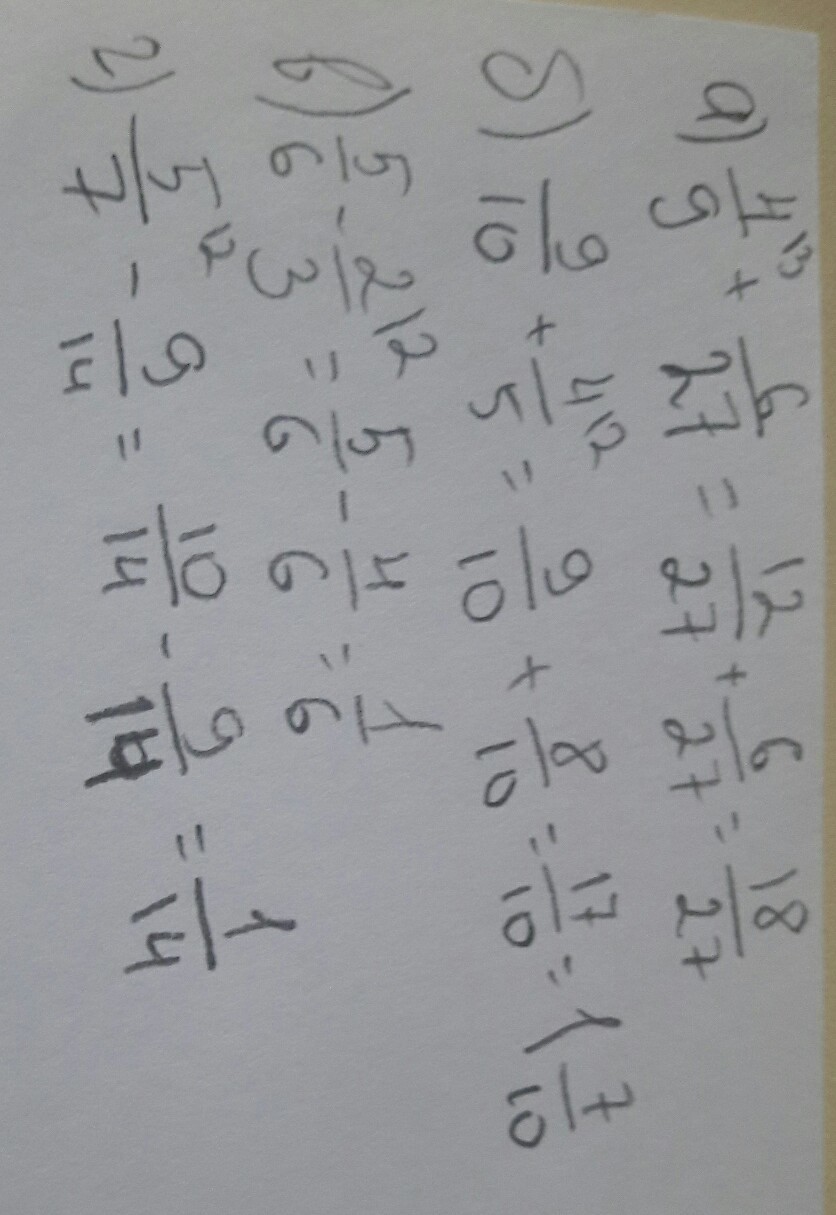 а) 4/9 \3 + 6/27 = 12/27 + 6/27 = 18/27
б) 9/10 + 4/5 \2 = 9/10 + 8/10 = 17/10 = 1 7/10
в) 5/6 - 2/3 \2 = 5/6 - 4/6 = 1/6
г) 5/7 \2 - 9/14 = 10/14 - 9/14 = 1/14